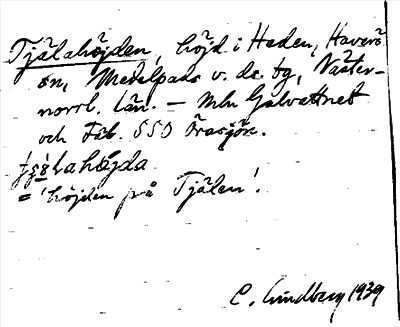 Tjälahöjden, höjd i Heden, Haverö
sn, Medelpads v. ds. tg, Väster-
norrl. län. – Mln Galvattnet
och Fåb. SSO Örasjön.
höjda
= 'höjden på Tjälen'.
C. Lindberg 1939